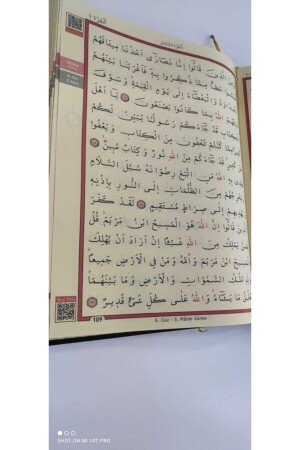 الجزء ٦
الَّذِينَ قَالُوا إِنَّا نَصَارَى أَخَذْنَا مِيثَاقَهُمْ
حَظًّا مِمَّا ذُكِّرُوا بِهِ فَأَغْرَيْنَا بَيْنَهُمُ
وَالْبَغْضَاءَ إِلَى يَوْمِ الْقِيمَةِ وَسَوْفَ
اللَّهُ بِمَا كَانُوا يَصْنَعُونَ يَا أَهْلَ
قَدْ جَاءَكُمْ رَسُولُنَا يُبَيِّنُ لَكُمْ
كُنْتُمْ تُخْفُونَ مِنَ الْكِتَابِ وَيَعْفُوا
قَدْ جَاءَكُمْ مِنَ اللَّهِ نُورٌ وَكِتَابٌ مُبِينٌ
اللَّهُ مَنِ اتَّبَعَ رِضْوَانَهُ سُبُلَ السَّلَامِ
مِنَ الظُّلُمَاتِ إِلَى النُّورِ بِإِذْنِهِ
إِلَى صِرَاطٍ مُسْتَقِيمٍ لَقَدْ كَفَرَ
قَالُوا إِنَّ اللَّهَ هُوَ الْمَسِيحُ ابْنُ مَرْيَمَ قُلْ
يَمْلِكُ مِنَ اللَّهِ شَيْئًا إِنْ أَرَادَ أَنْ يُهْلِكَ
ابْنَ مَرْيَمَ وَأُمَّهُ وَمَنْ فِي الْأَرْضِ جَمِيعًا
مُلْكُ السَّمٰوَاتِ وَالْأَرْضِ وَمَا بَيْنَهُمَا
مَا يَشَاءُ وَاللَّهُ عَلَى كُلِّ شَيْءٍ قَدِيرٌ
109
6. Cüz - 5. Mâide Sûresi
SHOT ON MI 10T PRO